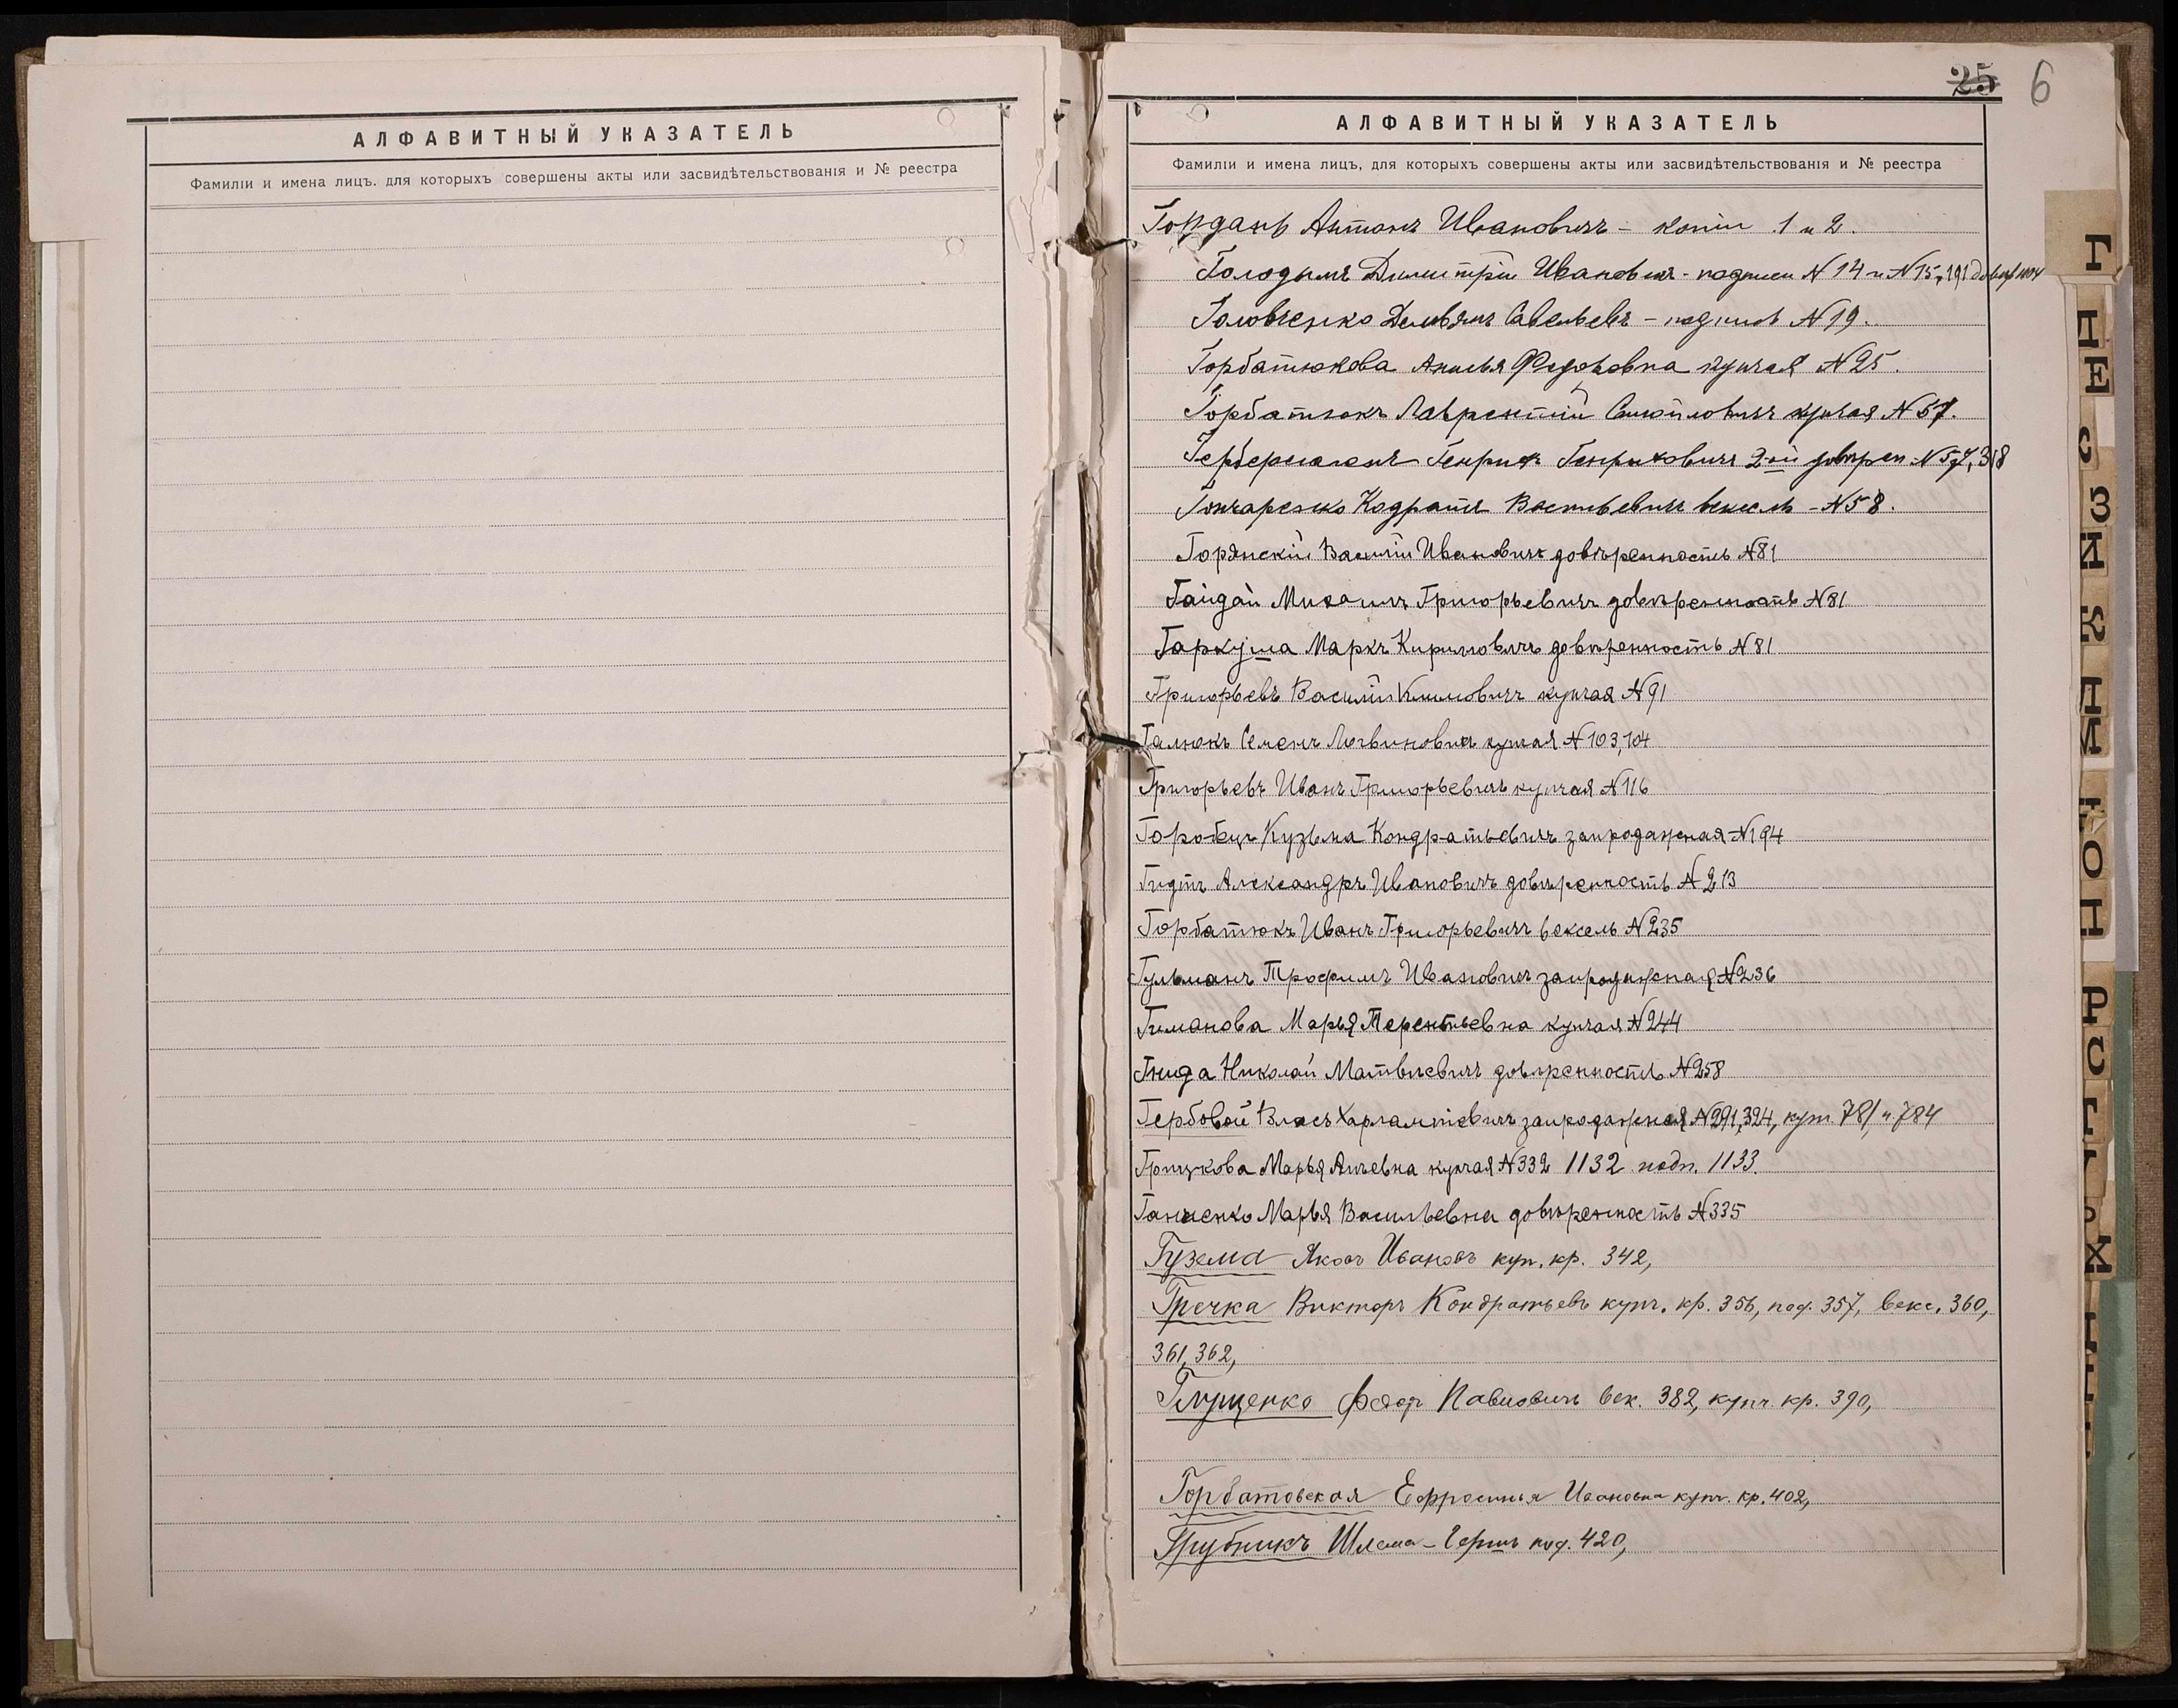 АЛФАВИТНЫЙ УКАЗАТЕЛЬ
Фамиліи и имена лицъ. для которыхъ совершены акты или засвидѣтельствованія и № реестра
25 6
АЛФАВИТНЫЙ УКАЗАТЕЛЬ
Фамиліи и имена лицъ, для которыхъ совершены акты или засвидѣтельствованія и № реестра
Гордань Антонъ Ивановичъ - копіи 1 и 2.
Голодымъ Димитрій Ивановичъ - подписи N 14 и N 15, 191
Головченко Демьянъ Савельевъ - подпись N 19.
Горбатюкова Анисья Федоровна купчая N 25.
Горбатюкъ Лаврентій Самойловичъ купчая N 57.
Генрихъ Генриховичъ 2-ой доверен. N 57, 318
Гончаренко Кодратъ Васильевичъ вексель - N 58.
Горянскій Василій Ивановичъ довѣренность N 81
Гайдай Михаилъ Григорьевичъ довѣренность N 81
Гаркуша Маркъ Кириловичъ довѣренность N 81
Григорьевъ Василій Климовичъ купчая N 91
Галюкъ Семенъ Логвиновичъ купчая N 103,104
Григорьевъ Иванъ Григорьевичъ купчая N 116
Горобецъ Кузьма Кондратьевичъ запродажная N 194
Гидтъ Александръ Ивановичъ довѣренность N 213
Горбатюкъ Иванъ Григорьевичъ вексель N 235
Гульманъ Трофимъ Ивановичъ запродажная N 236
Гиманова Марья Терентьевна купчая N 244
Гнида Николай Матвѣевичъ довѣренность N 258
Гербовой Власъ Харлампіевичъ запродажная N 291,324, куп. 781 и 784
Грицкова Марья купчая N 332 1132 подп. 1133.
Ганченко Марья Васильевна довѣренность N 335
Гузема Яковъ Ивановъ куп. кр. 342,
Гречка Викторъ Кондратьевъ купч. кр. 356, под. 357, векс. 360,
361, 362,
Глущенко Федоръ Павловичъ век. 382, купч. кр. 390,
Горбатовская Ефросинья Ивановна купч. кр. 402,
Грубникъ Шлема-Герш под. 420,
Г
Д
Е
З
И
К
Л
М
О
П
Р
С
Х